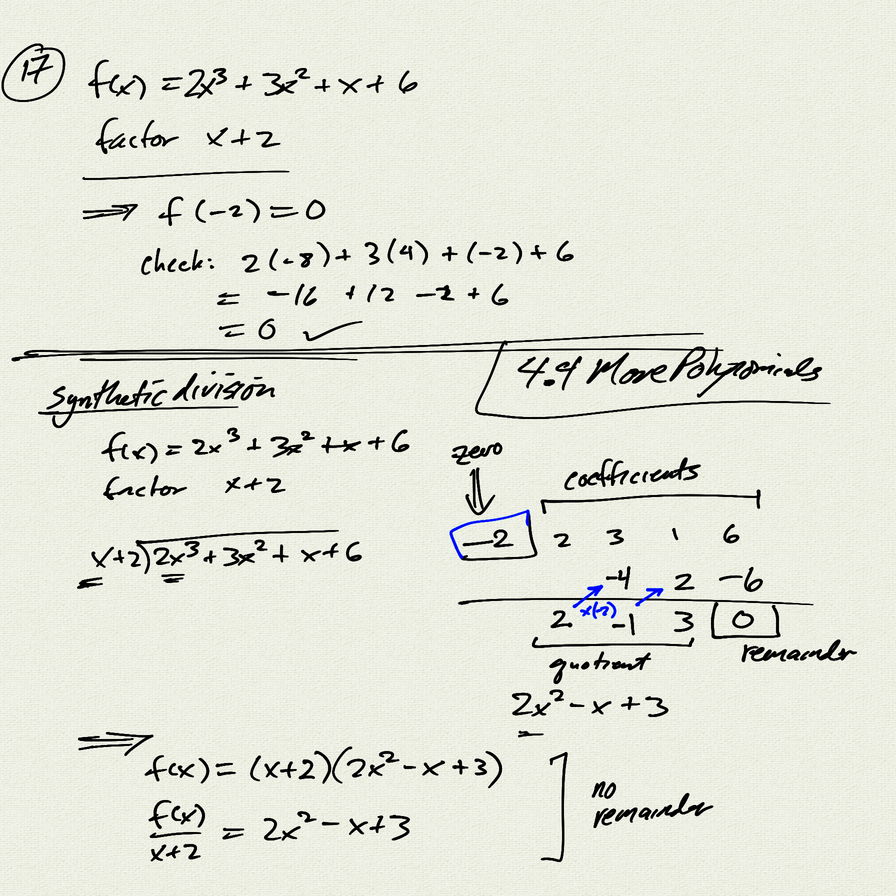 17
f(x) = 2x³ + 3x² + x + 6
factor x+2
⟹ f(-2) = 0
check: 2(-8) + 3(4) + (-2) + 6
= -16 +12 -2 + 6
= 0 ✓
4.4 More Polynomials
Synthetic division
f(x) = 2x³ + 3x² + x + 6
factor x+2
x+2)2x³ + 3x² + x + 6
zero
coefficients
-2 2 3 1 6
-4 2 -6
x(-2)
2 -1 3 0
quotient
remainder
2x² - x + 3
⟹
f(x) = (x+2)(2x² - x + 3)
f(x)/x+2 = 2x² - x + 3
no
remainder